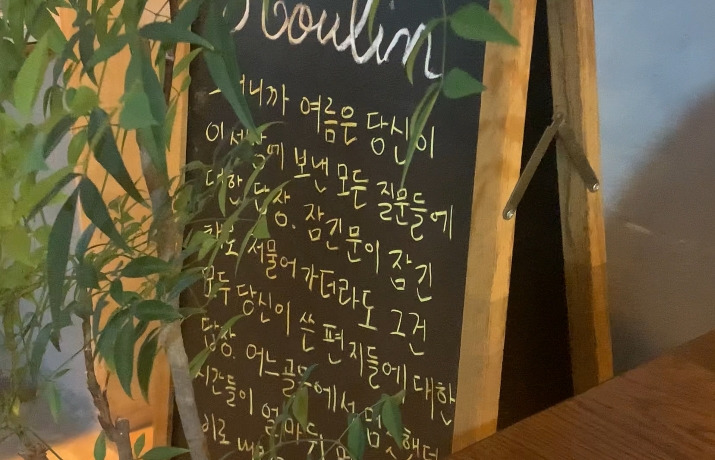 Moulin
여름은 당신이
이 세상에 보낸 모든 질문들에
대한 답장. 잠긴 문이 잠긴
채로 저물어 가더라도 그건
모두 당신이 쓴 편지들에 대한
답장. 어느 골목에서
시간들이 얼마두